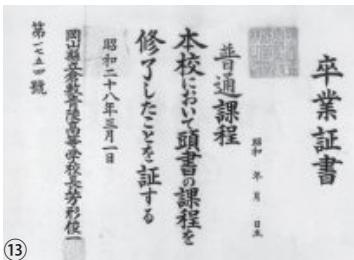 卒業証書
昭和 年 月 日生
普通課程
本校において頭書の課程を
修了したことを証する
昭和二十八年三月一日
岡山縣立倉敷青陵高等学校長芳形俊一
第一七五四號
⑬